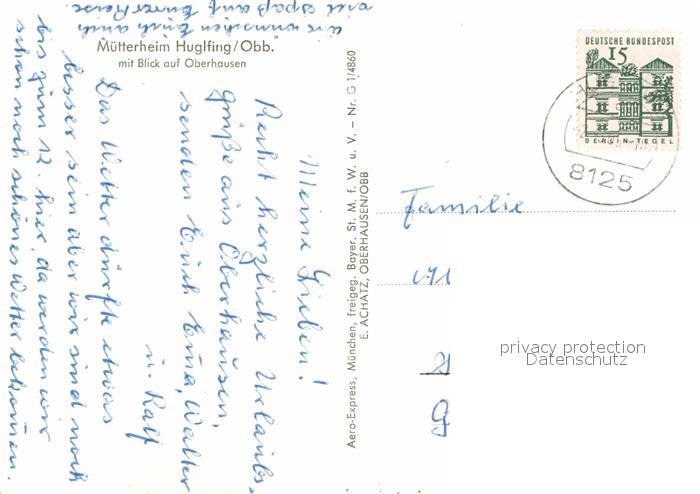 Mütterheim Huglfing/Obb.
mit Blick auf Oberhausen
Meine Lieben!
Recht herzliche Urlaubs-
grüße aus Oberhausen,
senden Euch Erna, Walter
u. Ralf
Das Wetter dürfte etwas
besser sein aber wir sind noch
bis zum 12. hier, da werden wir
schon noch schönes Wetter bekommen.
wir wünschen Euch auch
viel Spaß auf Eurer Reise.
Aero-Express, München, freigeg. Bayer. St. M. f. W. u. V. – Nr. G 1/4860
E. ACHATZ, OBERHAUSEN/OBB
DEUTSCHE BUNDESPOST
15
BERLIN-TEGEL
8125
Familie
privacy protection
Datenschutz